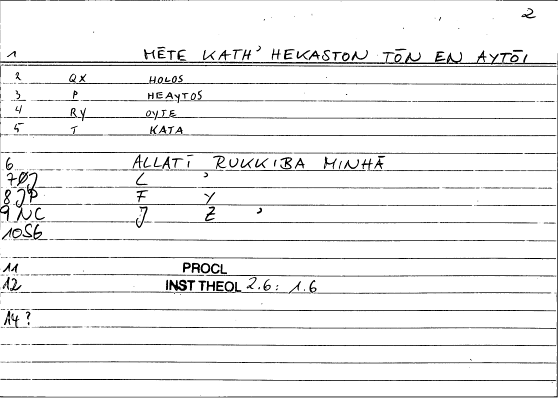 2
1 MĒTE KATH' HEKASTON TŌN EN AYTŌI
2 QX HOLOS
3 P HEAYTOS
4 RY OYTE
5 T KATA
6 ALLATĪ RUKKIBA MINHĀ
7 ØJ L '
8 JP F Y
9 NC J Z '
10 S6
11 PROCL
12 INST THEOL 2.6: 1.6
14?